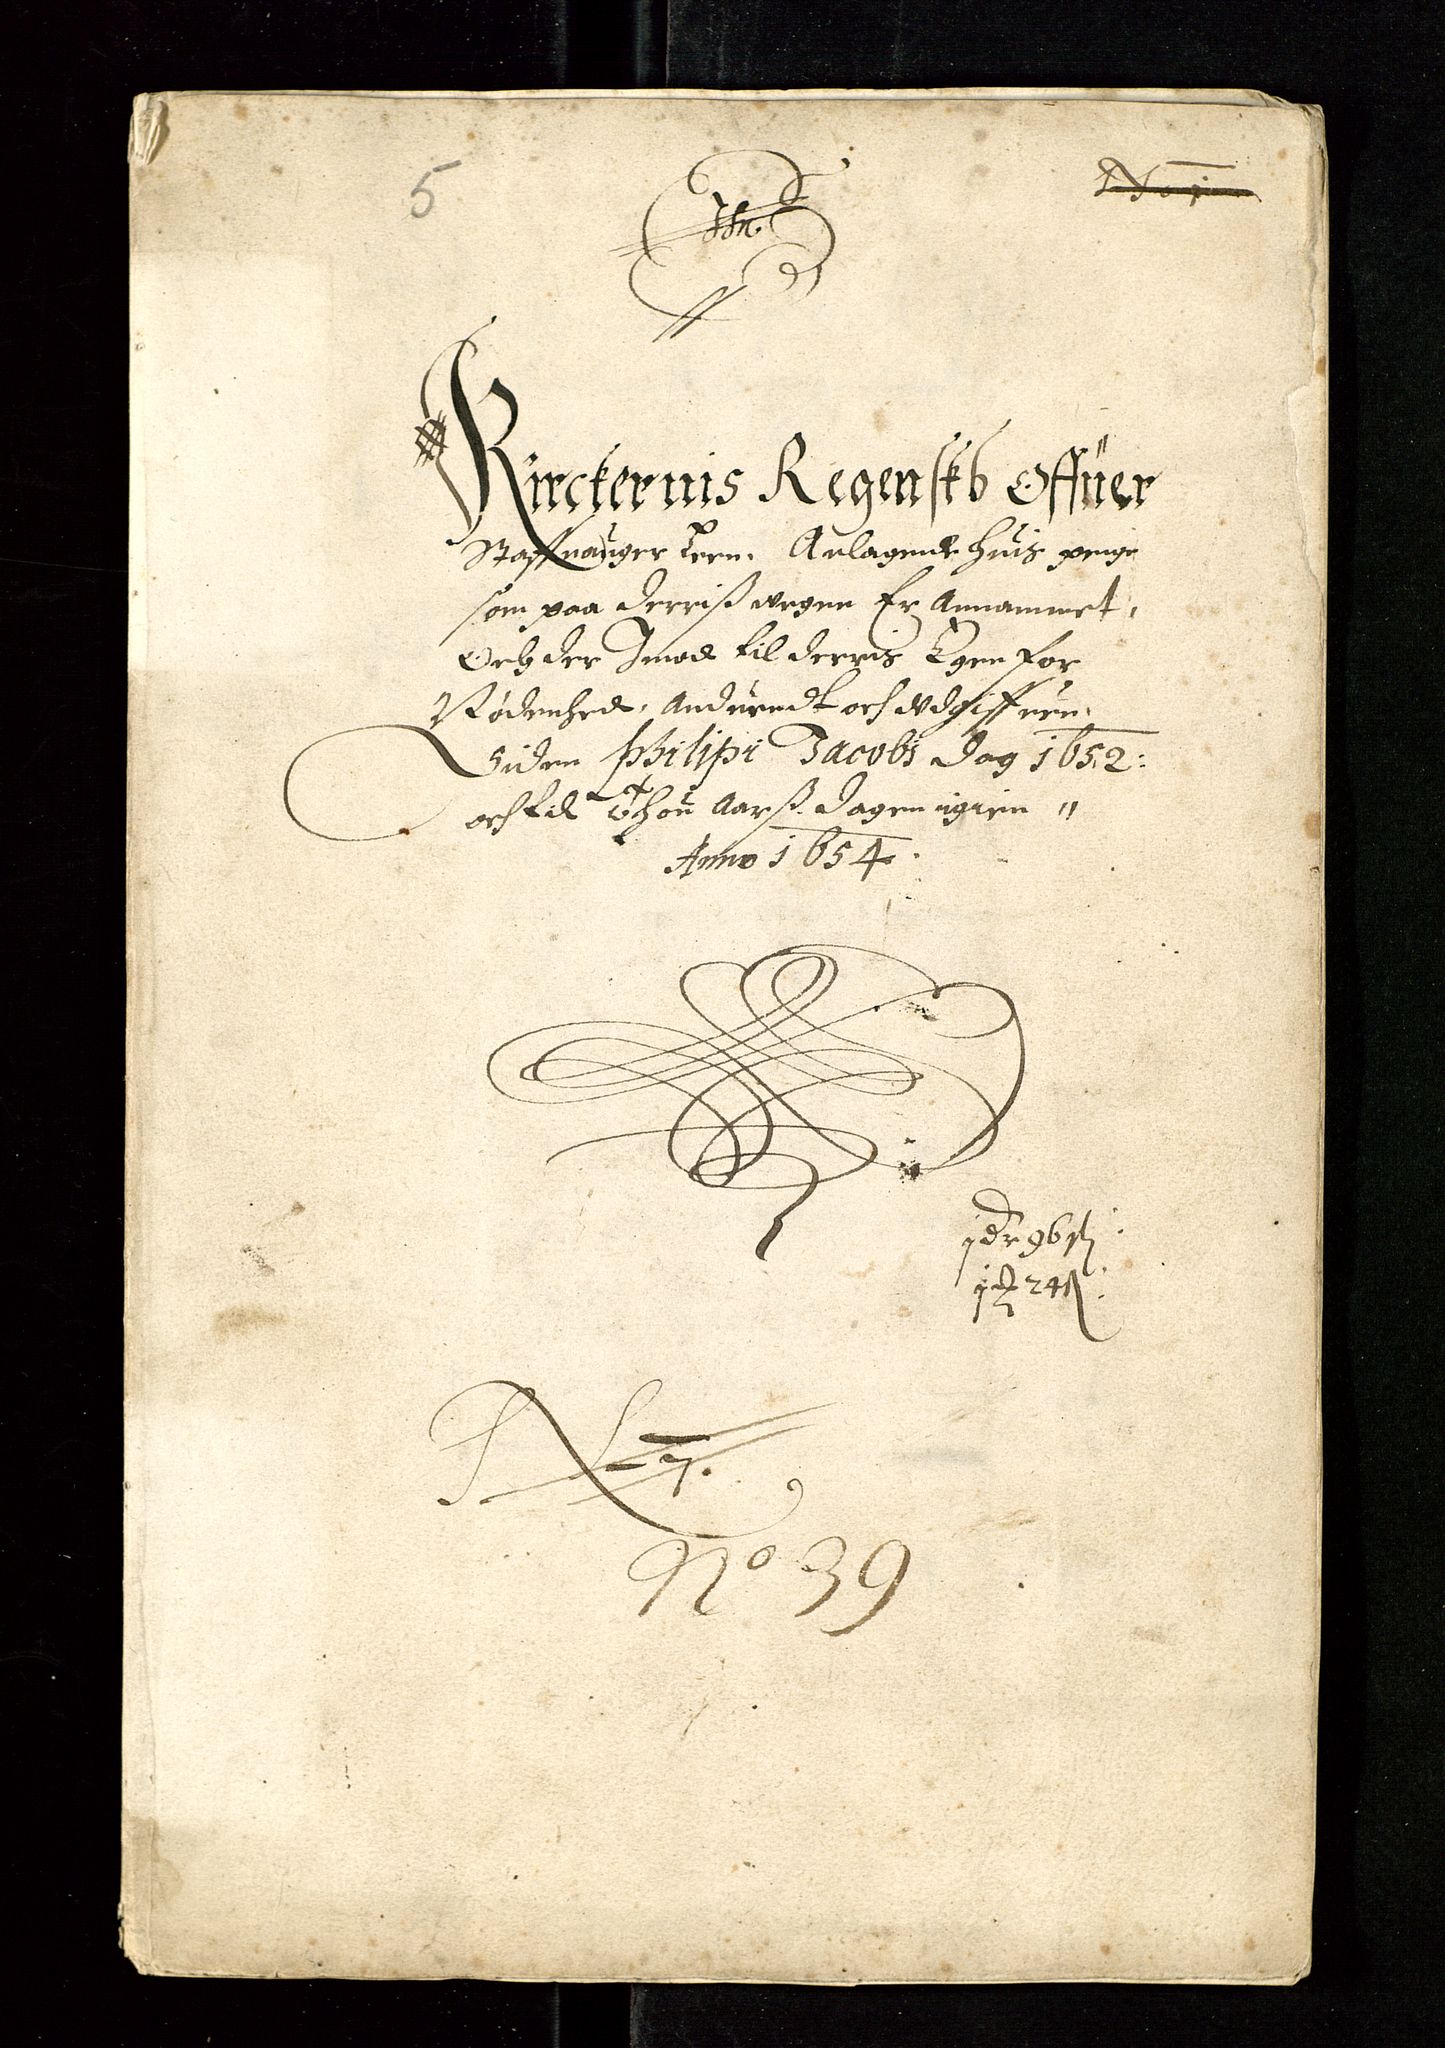 5
No 1
Kirckernis Regenskb Offuer
Staffuanger Leen. Anlagende huis penge
som paa derris vegne Er Annammet,
Och der Imod til derris Egen for
Nødenhed, Anduendt och Udgiffuen,
Siden Philipi Jacobi dag 1652:
och til Thou Aarß dagen igien "
Anno 1654.
1 dr 96 ß
1 24 ß
7.
No 39